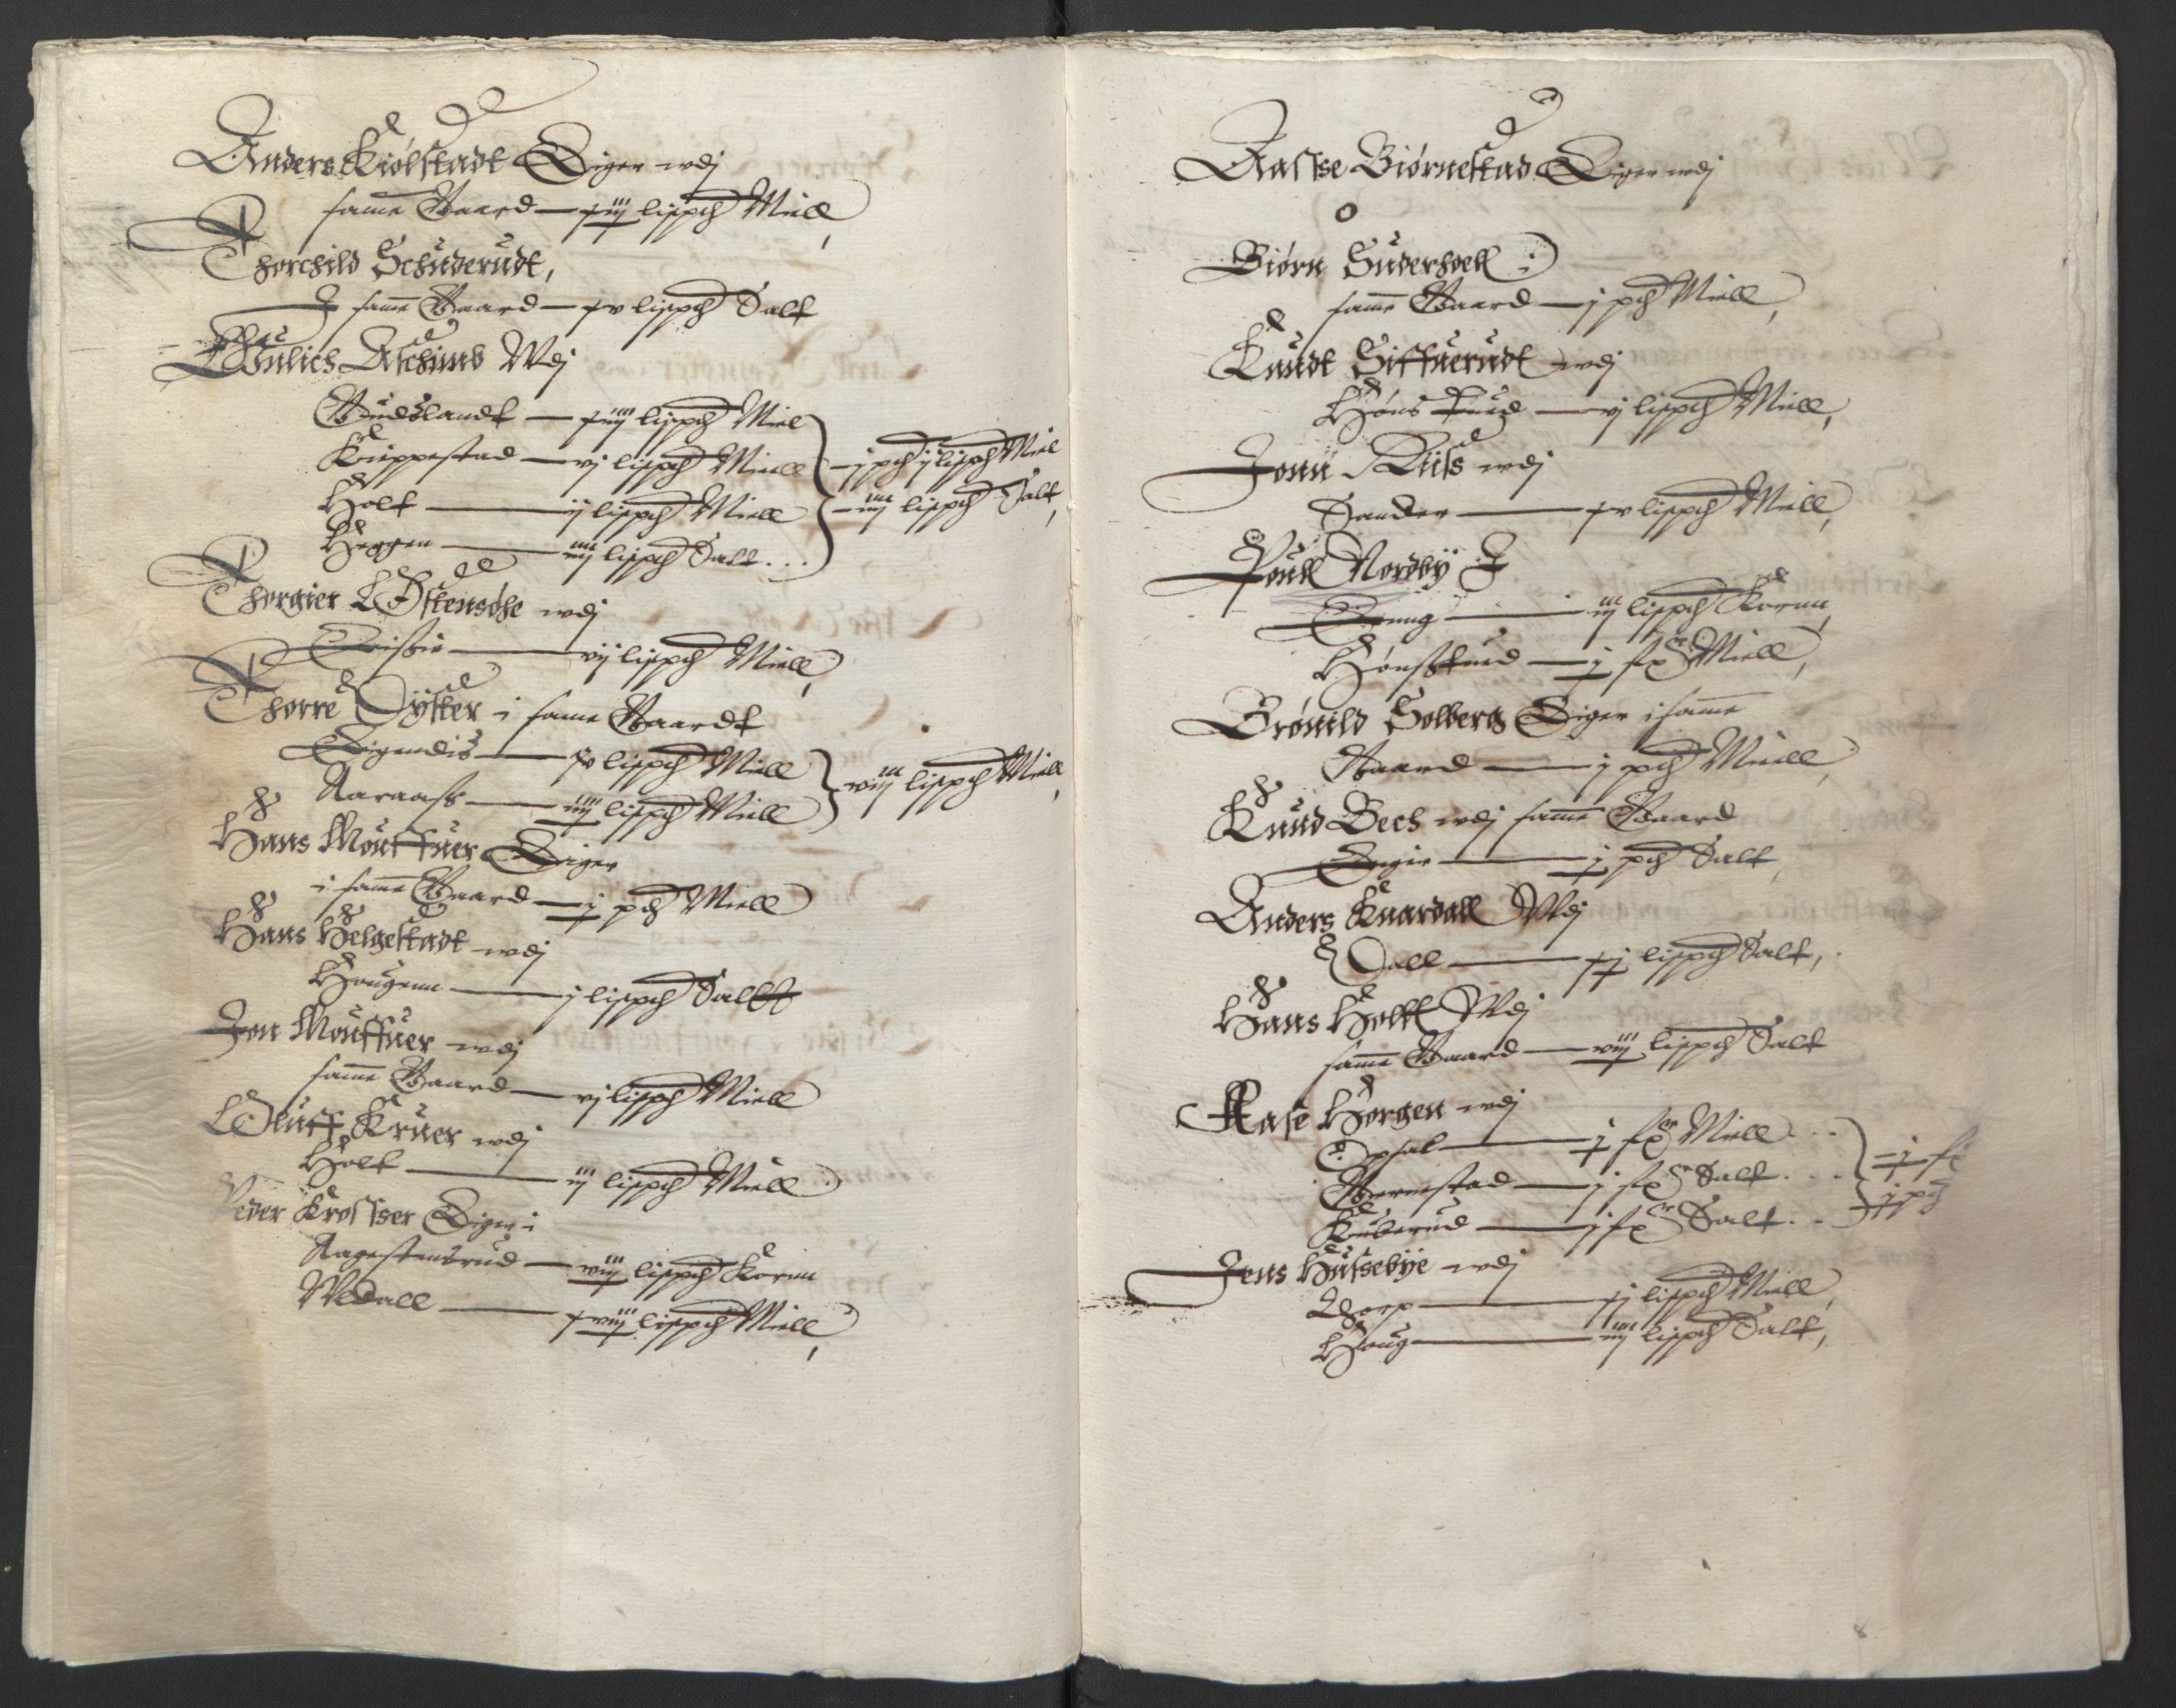 Anders Kiølstadt Eiger wdj
same Gaard — iiij lispd Miell
Thorchild Schuderudt,
I same Gaard — v lispd Salt
Gulich Aschimb Wdj
Gudslandt — iiij lispd Miel
Kieppestad — vj lispd Miell
Holt — ij lispd Miell
Heggen — iiij lispd Salt
j pd ij lispd Miel
iiij lispd Salt
Thorgier Østensøhe wdj
— vij lispd Miell
Thorre Dyster i same Gaardt
Eigendis — v lispd Miell
Aaraas — iiij lispd Miell
viij lispd Miell
Hans Mouffuer Eiger
i same Gaard — j pd Miell
Hans Helgestadt wdj
Haugenn — j lispd Salt
Jon Mouffuer wdj
same Gaard — vj lispd Miell
Oluff Kruer wdj
Holt — iij lispd Miell
Peder Krosser Eiger i
Aagestensrud — viij lispd Kornn
Wdall — viij lispd Miell
Aasse Biørnestad Eiger wdj
0
Biørn Suderhoell i
same Gaard — j pd Miell
Knudt Siffuerudt wdj
Høns — vj lispd Miell
Jonn Riis wdj
Sander — v lispd Miell
Pouell Nordby I
— iij lispd Kornn
Hønss — j Miell
Brønild Solberg Eiger i same
Gaard — j pd Miell
Knud Bech wdj same Gaard
Engie — j pd Salt
Anders Knardall Wdj
Dall — j lispd Salt
Hans Holtt Wdj
same Gaard — viij lispd Salt
Aase Horgen wdj
Opsal — j Miell
Gernestad — j Salt
Kuberud — j Salt
j
j pd
Jens Hussebye wdj
Thorp — j lispd Miell
Houg — iiij lispd Salt
8